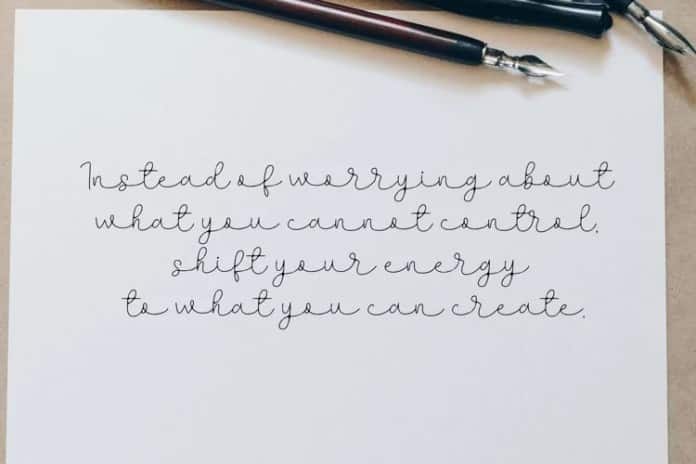 Instead of worrying about
what you cannot control,
shift your energy
to what you can create.